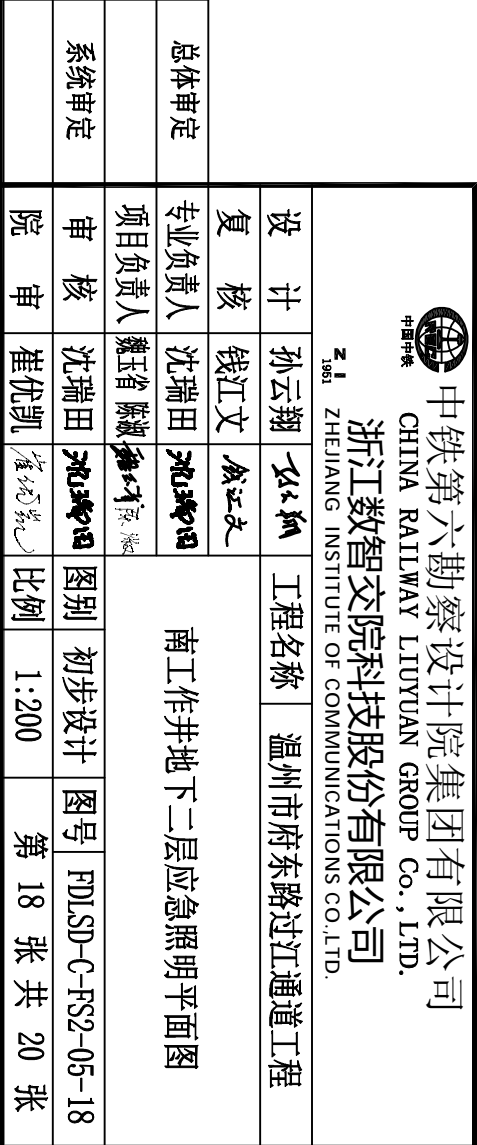 中国中铁
中铁第六勘察设计院集团有限公司
CHINA RAILWAY LIUYUAN GROUP Co.,LTD.
1951
浙江数智交院科技股份有限公司
ZHEJIANG INSTITUTE OF COMMUNICATIONS CO.,LTD.
设 计 孙云翔 孙云翔 工程名称 温州市府东路过江通道工程
复 核 钱江文 钱江文
总体审定 专业负责人 沈瑞田 沈瑞田 南工作井地下二层应急照明平面图
项目负责人 魏玉省 陈淑 魏玉省 陈淑
系统审定 审 核 沈瑞田 沈瑞田 图别 初步设计 图号 FDLSD-C-FS2-05-18
院 审 崔优凯 崔优凯 比例 1:200 第 18 张 共 20 张